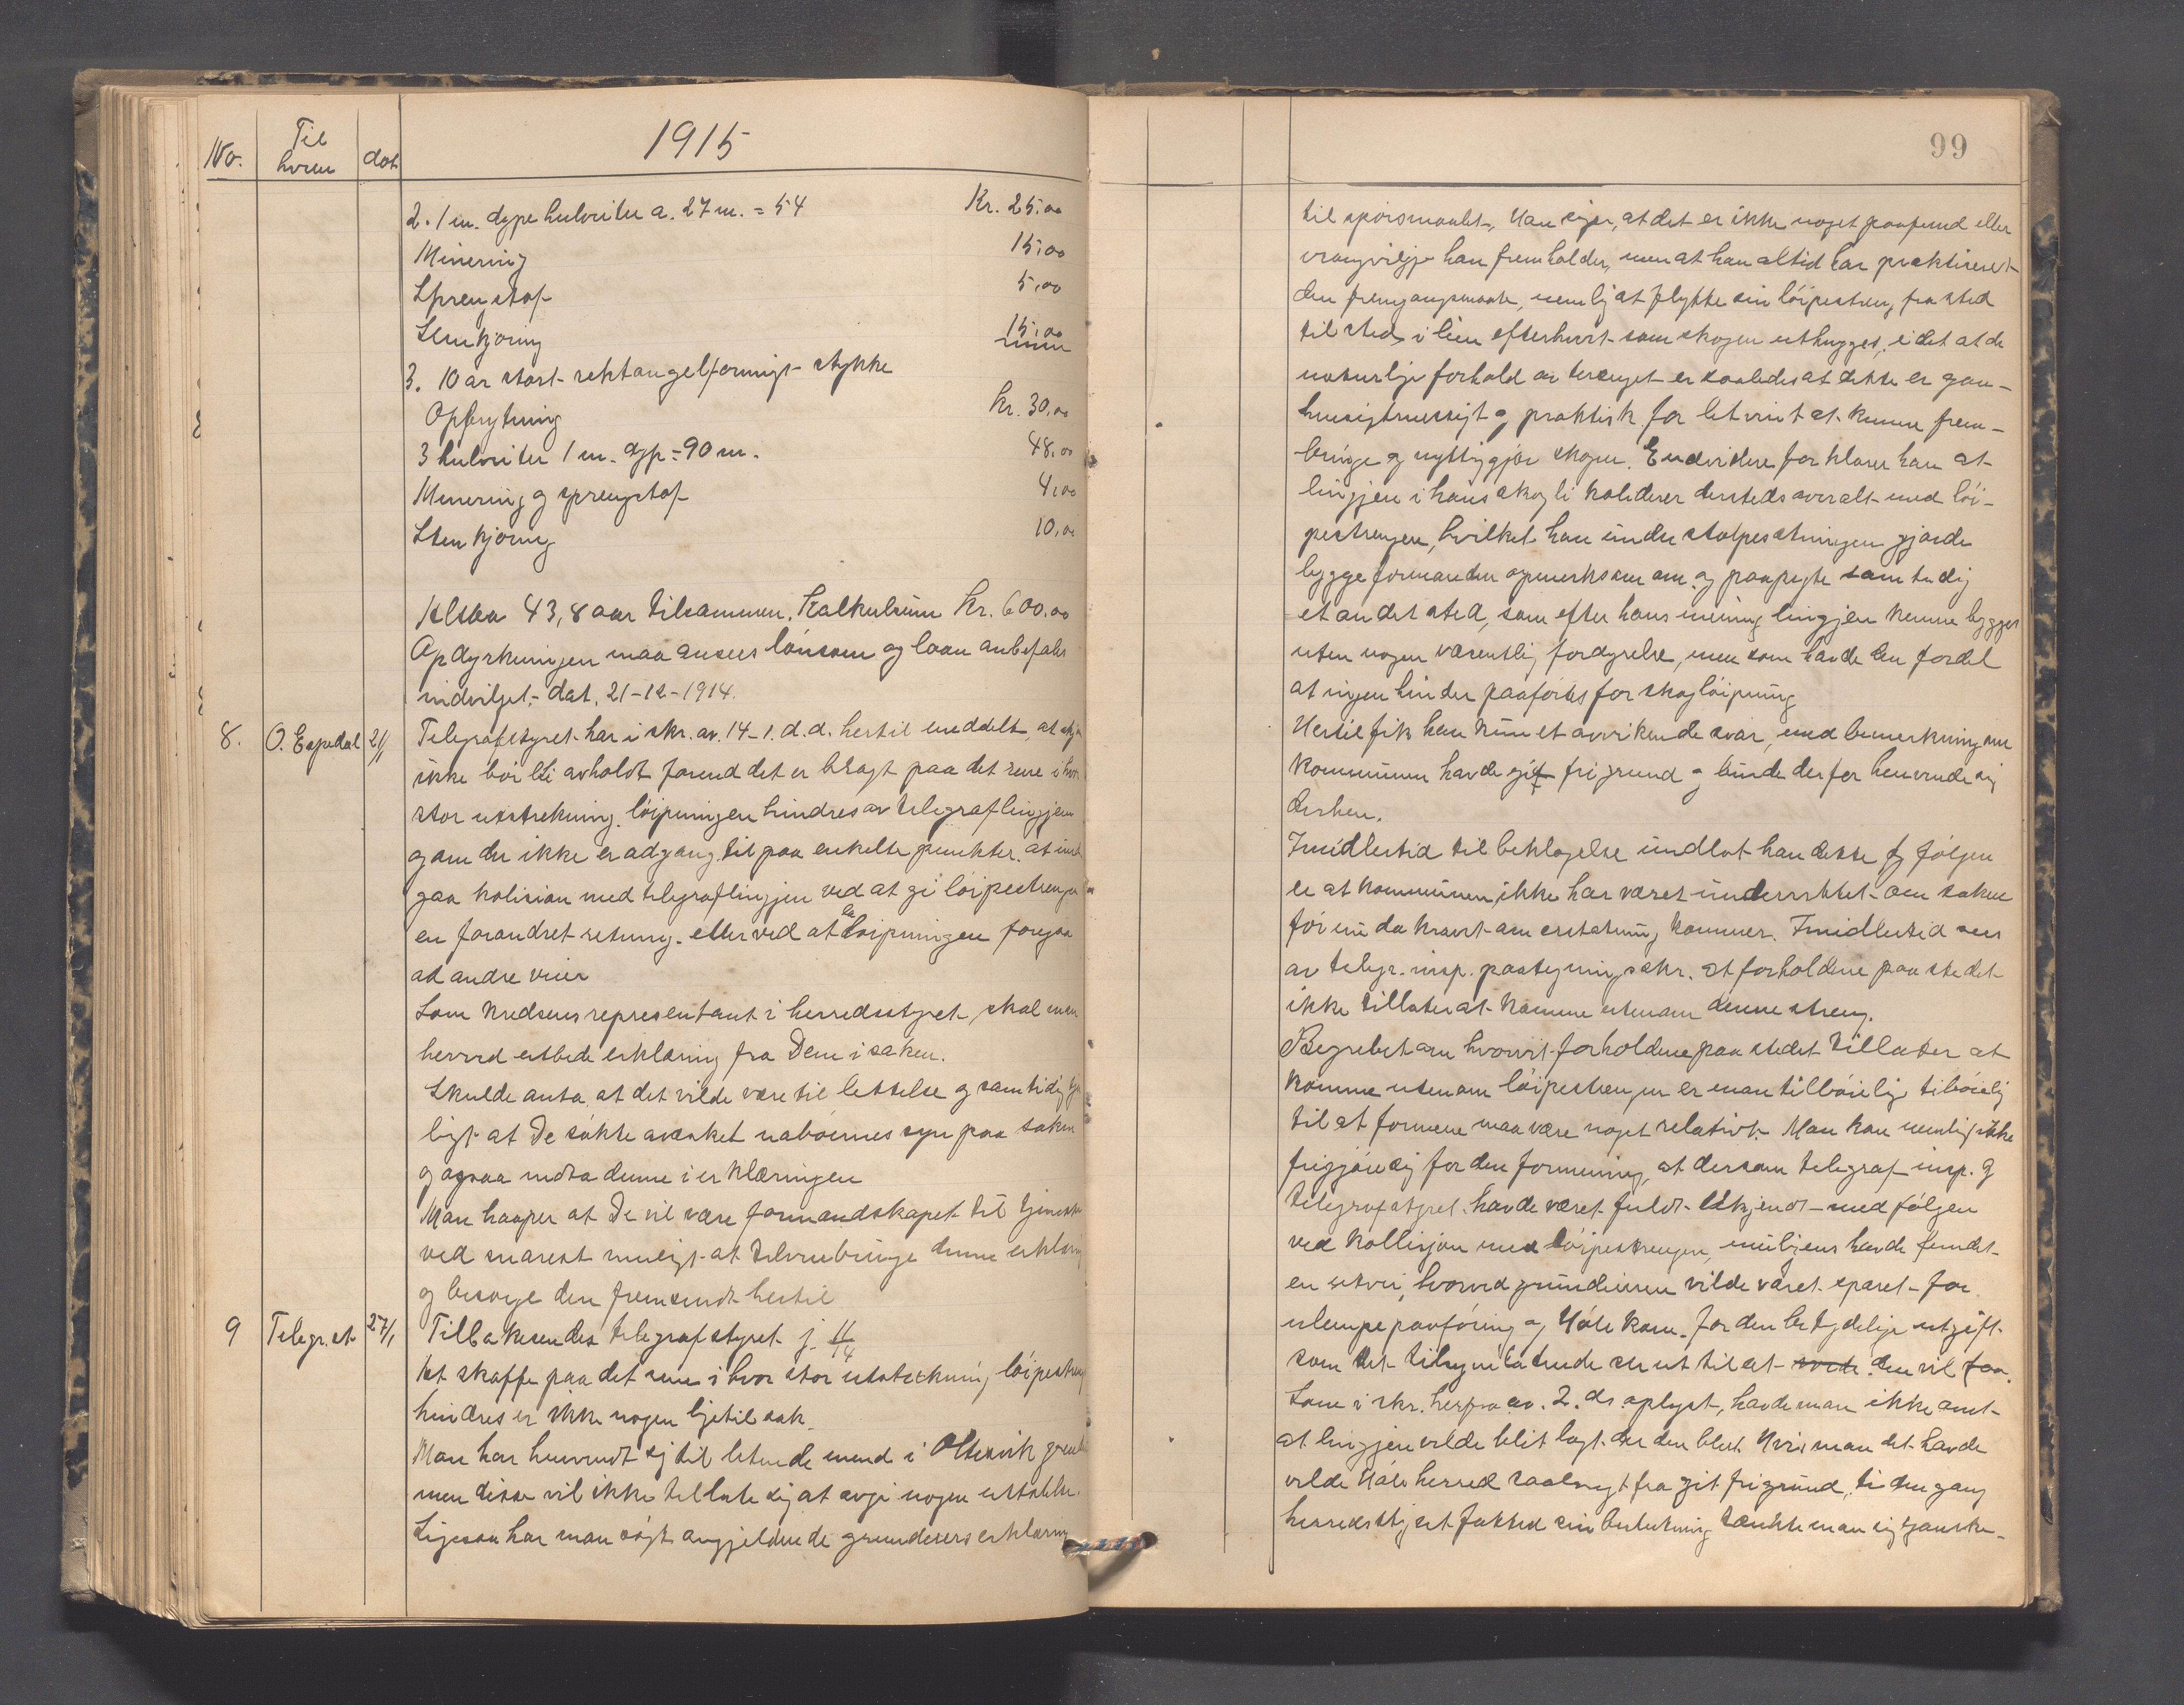 No. Til hvem dat 1915
2. 1 m. dype hulveiter a. 27 m. = 54 Kr. 25,00
Minering 15,00
Sprengstof 5,00
Stenkjøring 15,00
3. 10 ar stort rektangelformigt stykke
Opbrytning Kr. 30,00
3 hulveiter 1 m. dyp = 90 m. 48,00
Minering og sprengstof 4,00
Stenkjøring 10,00
Altsaa 43,8 aar tilsammen. Kalkulsum Kr. 600,00
Opdyrkningen maa ansees lönsom og laan anbefales
indvilget. dat. 21-12-1914.
8. O. Espedal 21/1 Telegrafstyret har i skr. av. 14-1. d.d. hertil meddelt, at skjøn
ikke bör bli avholdt forend det er bragt paa det rene i hvor
stor utstrekning löipningen hindres av telegraflingjen
og om der ikke er adgang til paa enkelte punkter at
gaa kolision med telegraflingjen ved at gi löipestrengen
en forandret retning eller ved at la löipningen foregaa
ad andre veier
Som kredsens representant i herredsstyret, skal man
herved utbede erklæring fra Dem i saken.
Skulde anta at det vilde være til lettelse og samtidig
ligt at De søkte avæsket naboernes syn paa saken
og ogsaa indta denne i erklæringen
Man haaper at De vil være formandskapet til tjeneste
ved snarest muligt at tilveiebringe denne erklæring
og besørge den fremsendt hertil
9 Telegr.st. 27/1 Tilbakesendes telegrafstyret j. 11/14
At skaffe paa det rene i hvor stor utstrekning löipestreng
hindres er ikke nogen ljetil sak.
Man har henvendt sj til letende mend i Oltesvik grend
men disse vil ikke tillate sig at avgi nogen uttalelse.
Ligesaa har man søgt angjeldende grundeiers erklæring
99
til spörsmaalet, Han sier, at det er ikke noget paafund eller
vrangvilje han fremholder, men at han altid har praktiseret
den fremgangsmaate, nemlig at flytte sin löipestreng fra sted
til sted i lien efterhvert som skogen uthugges, idet at de
naturlige forhold av terenget er saaledes at dette er gan-
hensigtmessigt og praktisk for letvint at kunne frem-
bringe og nyttiggjøre skogen. Endvidere forklarer han at
lingjen i hans skogli koliderer dersteds overalt med löi-
pestrengen, hvilket han under stolpesætningen gjorde
byggeformanden opmerksom om og paapegte samtidig
et andet sted, som efter hans mening lingjen kunne bygges
uten nogen væsentlig fordyrelse, men som havde den fordel
at ingen hinder paaförtes for skoglöipning
Hertil fik han kun et avvikende svar, med bemerkning om
kommunen havde git fri grund og burde derfor henvende sig
derhen.
Imidlertid til beklagelse undlot han dette og følgen
er at kommunen ikke har været underrettet om saken
för nu da kravet om erstatning kommer. Imidlertid sees
av telegr. insp. paategningsskr. at forholdene paa stedet
ikke tillater at komme utenom denne streng.
Begrebet om hvorvit forholdene paa stedet tillater at
komme utenom löipestrengen er man tilböielig tiböielig
til at formene maa være noget relativt. Man kan nemlig ikke
frigjöre sig for den formening, at dersom telegraf insp. og
telegrafstyret havde været fuldt utkjendt med følgen
ved kollisjon med löipestrengen, muligens havde fundet
en utvei, hvorved grundeieren vilde været sparet for
ulempepaaföring og Höle kom. for den betydelige utgift
som det tilsynelatende ser ut til at den vil faa.
Som i skr. herfra av. 2. ds. oplyst, havde man ikke anet
at lingjen vilde blit lagt der den blev. Hvis man det havde
vilde Höle herred saavegt fra git frigrund, ti den gang
herredsstyret fattet sin beslutning tænkte man sig ganske